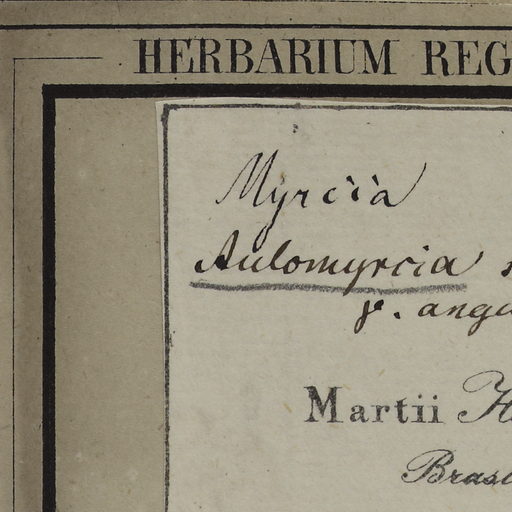 HERBARIUM REG
Myrcia
Aulomyrcia
γ. angu
Martii H
Brasi